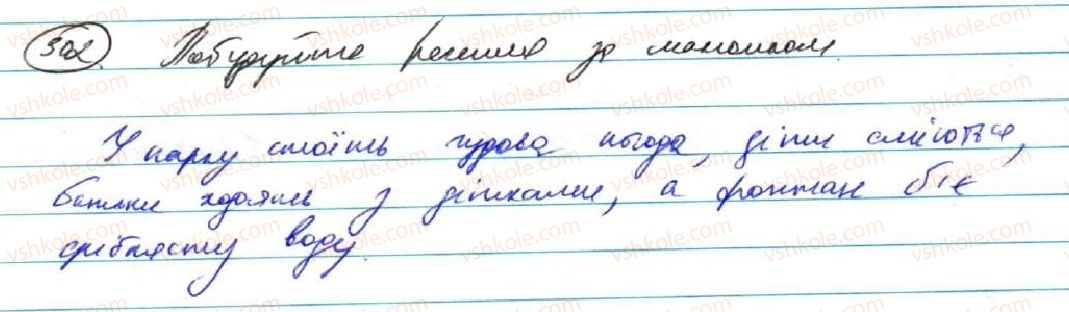 302. Побудуйте речення за малюнком.
У парку стоїть чудова погода, діти сміються,
батьки ходять з дітками, а фонтан б'є
сріблясту воду.